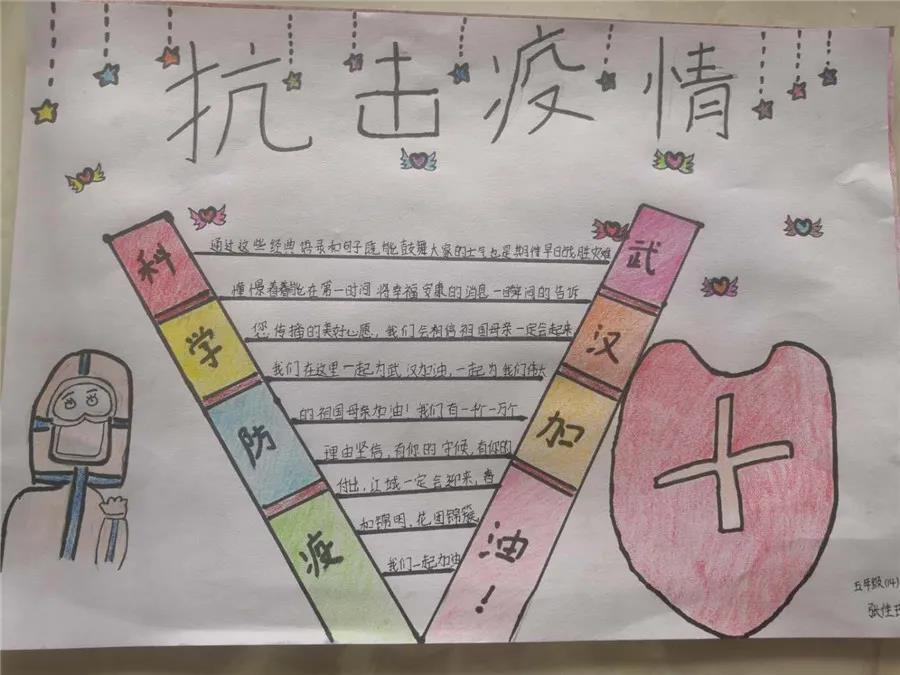 抗击疫情
科学防疫
武汉加油!
通过这些经典语录和句子既能鼓舞大家的士气也是期惟早日战胜灾难
憧憬着春能在第一时间将幸福安康的消息一瞬间的告诉
您传播的美好心愿,我们会相信祖国母亲一定会起来
我们在这里一起为武汉加油,一起为我们伟大
的祖国母亲加油!我们有一千一万个
理由坚信,有你的守候,有你的
付出,江城一定会迎来,春
和锦明,花团锦簇
我们一起加油
五年级(14)
张佳